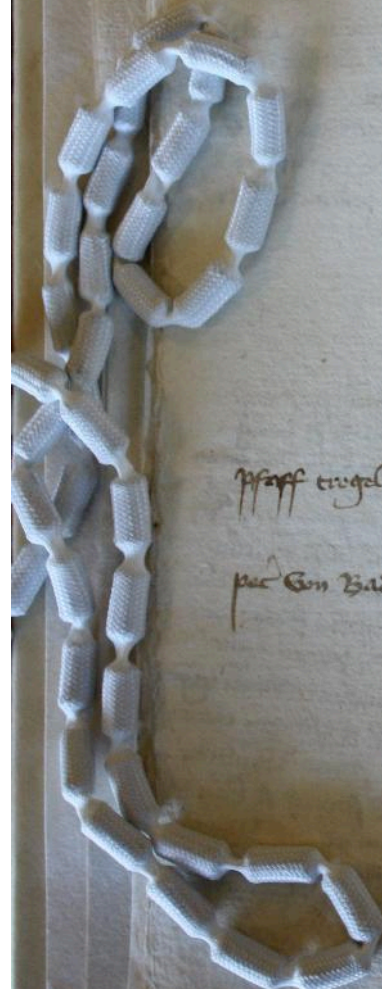 pfaff trogel
pet von Ba